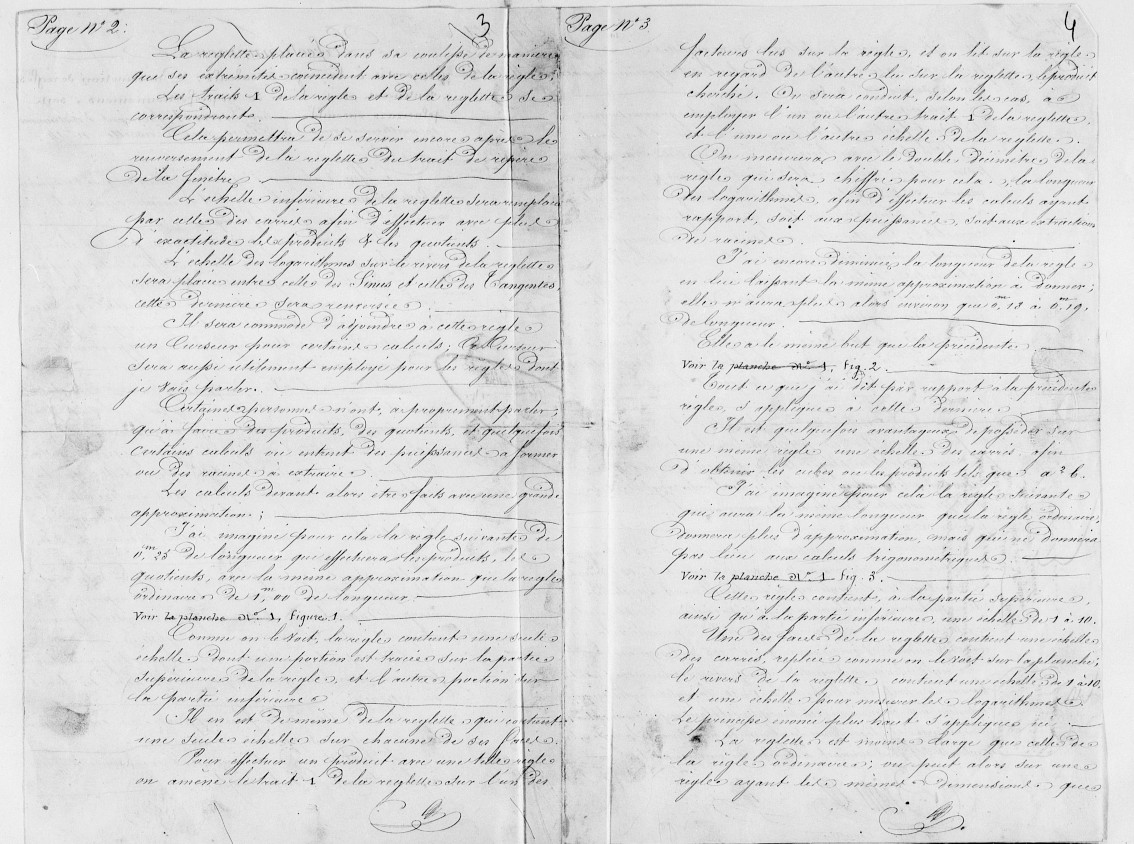 Page Nº 2:
3
La reglette placée dans sa coulisse de manière
que ses extremités coincident avec celles de la règle.
Les traits 1 de la règle et de la reglette se
correspondront.
Cela permettra de se servir encore après le
renversement de la reglette du trait de repère
de la fenêtre.
L'échelle inférieure de la reglette sera remplacée
par celle des carrés afin d'effectuer avec plus
d'exactitude les produits & les quotients.
L'échelle des logarithmes sur le revers de la reglette
sera placée entre celles des Sinus et celles des Tangentes,
cette dernière sera renversée.
Il sera commode d'adjoindre à cette règle
un Curseur pour certains calculs; Ce Curseur
sera aussi utilement employé pour les règles dont
je vais parler.
Certaines personnes n'ont, à proprement parler,
qu'à faire des produits, des quotients, et quelquefois
certains calculs ou entrent des puissances à former
ou des racines à extraire.
Les calculs devant alors être faits avec une grande
approximation;
J'ai imaginé pour cela la règle suivante de
0,ᵐ25 de longueur qui effectuera les produits, les
quotients, avec la même approximation que la règle
ordinaire de 1,ᵐ00 de longueur.
Voir la planche Nº 1, figure 1.
Comme on le voit, la règle contient une seule
échelle dont une portion est tracée sur la partie
supérieure de la règle, et l'autre portion sur
la partie inférieure.
Il en est de même de la reglette qui contient
une seule échelle sur chacune de ses faces.
Pour effectuer un produit avec une telle règle
on amène le trait 1 de la reglette sur l'un des
Page Nº 3
4
facteurs lus sur la règle, et on lit sur la règle
en regard de l'autre lu sur la reglette, le produit
cherché. On sera conduit, selon les cas, à
employer l'un ou l'autre trait 1 de la reglette,
et l'une ou l'autre échelle de la reglette.
On mesurera avec le double décimètre de la
règle qui sera chiffré pour cela, la longueur
des logarithmes, afin d'effectuer les calculs ayant
rapport, soit aux puissances, soit aux extractions
de racines.
J'ai encore diminué la longueur de la règle
en lui laissant la même approximation à donner;
elle n'aura plus alors environ que 0,ᵐ18 à 0,ᵐ19.
de longueur.
Elle a le même but que la précédente
Voir la planche Nº 1, fig. 2.
Tout ce que j'ai dit par rapport à la précédente
règle, s'applique à cette dernière.
Il est quelquefois avantageux de posséder sur
une même règle une échelle des carrés, afin
d'obtenir les cubes ou les produits tels que a² b.
J'ai imaginé pour cela la règle suivante
qui aura la même longueur que la règle ordinaire,
donnera plus d'approximation, mais qui ne donnera
pas lieu aux calculs trigonométriques.
Voir la planche Nº 1 fig. 3.
Cette règle contient, à la partie supérieure,
ainsi qu'à la partie inférieure, une échelle de 1 à 10.
Une des faces de la reglette contient une échelle
des carrés, repliée comme on le voit sur la planche;
le revers de la reglette contient une échelle de 1 à 10,
et une échelle pour mesurer les logarithmes.
Le principe énoncé plus haut s'applique ici.
La reglette est moins large que celle de
la règle ordinaire; on peut alors sur une
règle ayant les mêmes dimensions que